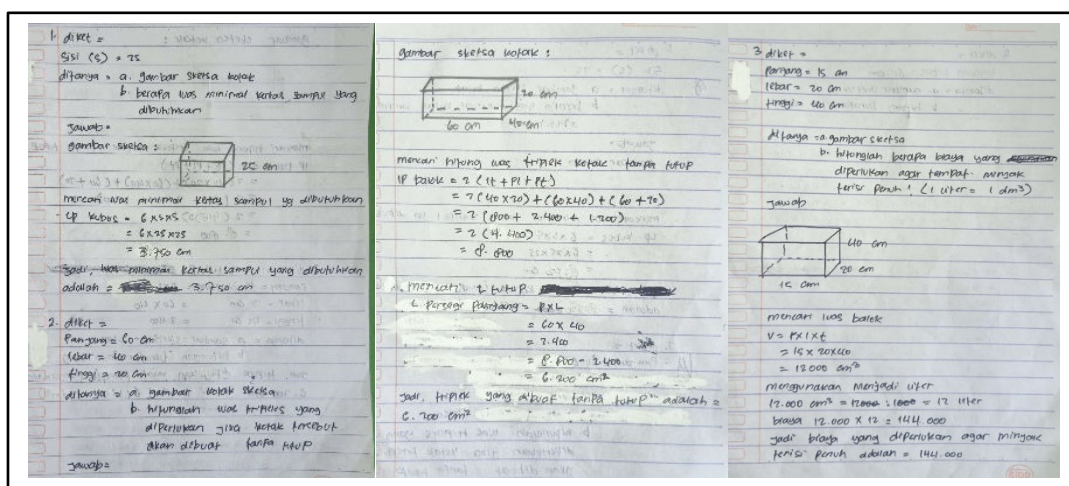 1. diket =
Sisi (s) = 25
ditanya = a. gambar sketsa kotak
b. berapa luas minimal kertas sampul yang
dibutuhkan
Jawab =
gambar sketsa :
25 cm
mencari luas minimal kertas sampul yg dibutuhkan
LP kubus = 6 x s x s
= 6 x 25 x 25
= 3.750 cm
Jadi, luas minimal kertas sampul yang dibutuhkan
adalah = 3.750 cm
2. diket =
Panjang = 60 cm
lebar = 40 cm
tinggi = 20 cm
ditanya = a. gambar kotak sketsa
b. hitunglah luas tripleks yang
diperlukan jika kotak tersebut
akan dibuat tanpa tutup
Jawab =
gambar sketsa kotak :
20 cm
60 cm
40 cm
mencari hitung luas triplek kotak tanpa tutup
LP balok = 2 (lt + pl + pt)
= 2 (40 x 20) + (60 x 40) + (60 + 20)
= 2 (800 + 2.400 + 1.200)
= 2 (4.400)
= 8.800
mencari L tutup
L persegi panjang = P x L
= 60 x 40
= 2.400
= 8.800 - 2.400
= 6.200 cm²
Jadi, triplek yang dibuat tanpa tutup adalah =
6.200 cm²
3 diket =
Panjang = 15 cm
lebar = 20 cm
tinggi = 40 cm
ditanya = a gambar sketsa
b. hitunglah berapa biaya yang
diperlukan agar tempat minyak
terisi penuh ! (1 liter = 1 dm³)
Jawab
40 cm
20 cm
15 cm
mencari luas balok
V = P x l x t
= 15 x 20 x 40
= 12000 cm³
menggunakan menjadi liter
12.000 cm³ = 12000 : 1000 = 12 liter
biaya 12.000 x 12 = 144.000
jadi biaya yang diperlukan agar minyak
terisi penuh adalah = 144.000